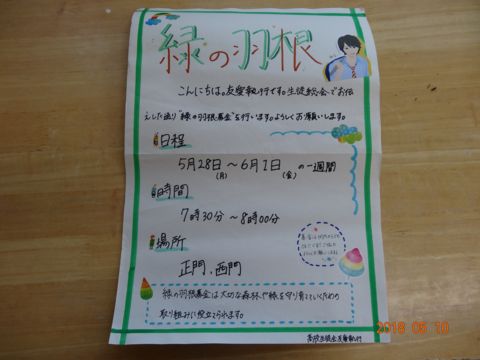 緑の羽根
こんにちは。友愛執行です。生徒総会でお伝
えした通り"緑の羽根募金"を行います。よろしくお願いします。
日程
5月28日〜6月1日の一週間
(月) (金)
時間
7時30分〜8時00分
場所
正門、西門
緑の羽根募金は大切な森林や緑を守り育てていくための
取り組みに役立てられます。
2018 05 10